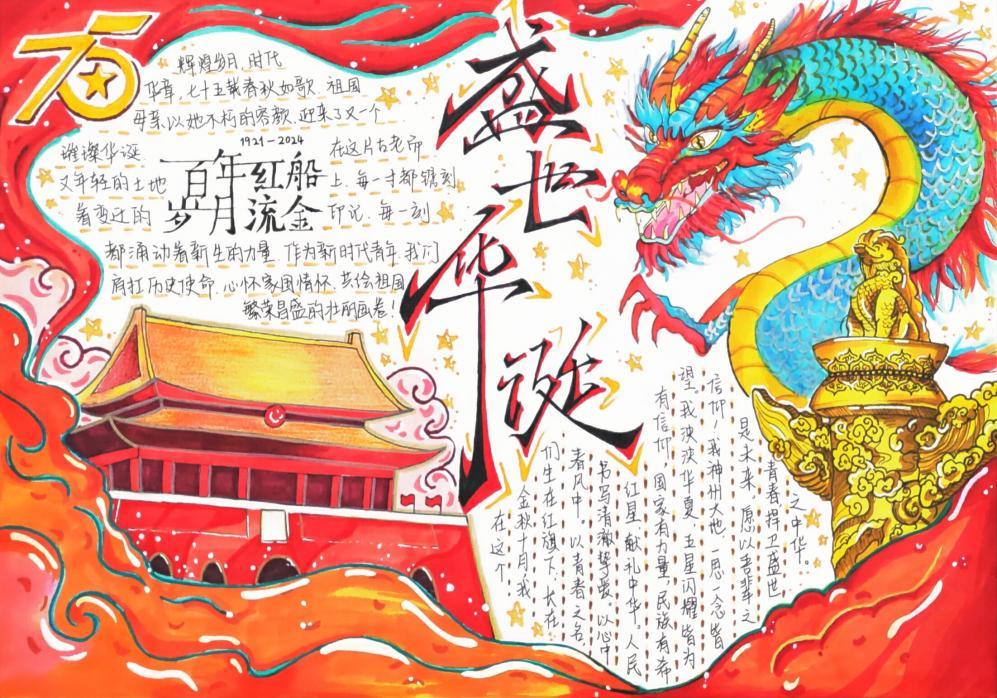 75
辉煌岁月,时代
华章,七十五载春秋如歌,祖国
母亲以她不朽的容颜,迎来了又一个
璀璨华诞
在这片古老而
又年轻的土地
上,每一寸都镌刻
着变迁的
印记,每一刻
都涌动着新生的力量,作为新时代青年,我们
肩扛历史使命,心怀家国情怀,共绘祖国
繁荣昌盛的壮丽画卷!
1921-2024
百年红船
岁月流金
盛世华诞
在这个
金秋十月,我
们生在红旗下,长在
春风中。以青春之名,
书写清澈挚爱。以心中
红星,献礼中华,人民
有信仰,国家有力量,民族有希
望。我泱泱华夏,五星闪耀皆为
信仰!我神州大地,一思一念皆
是未来,愿以吾辈之
青春捍卫盛世
之中华。